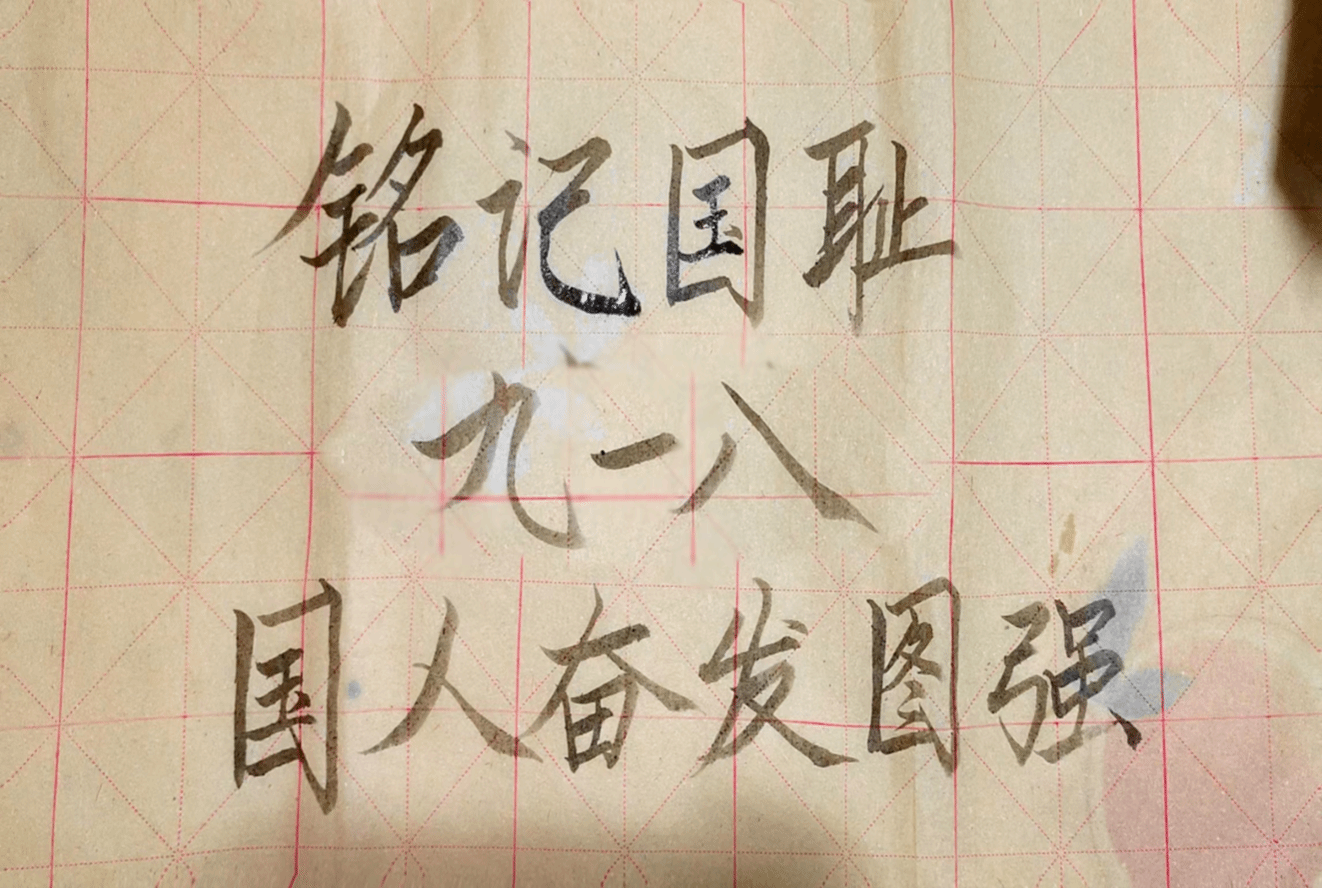 铭记国耻
九一八
国人奋发图强